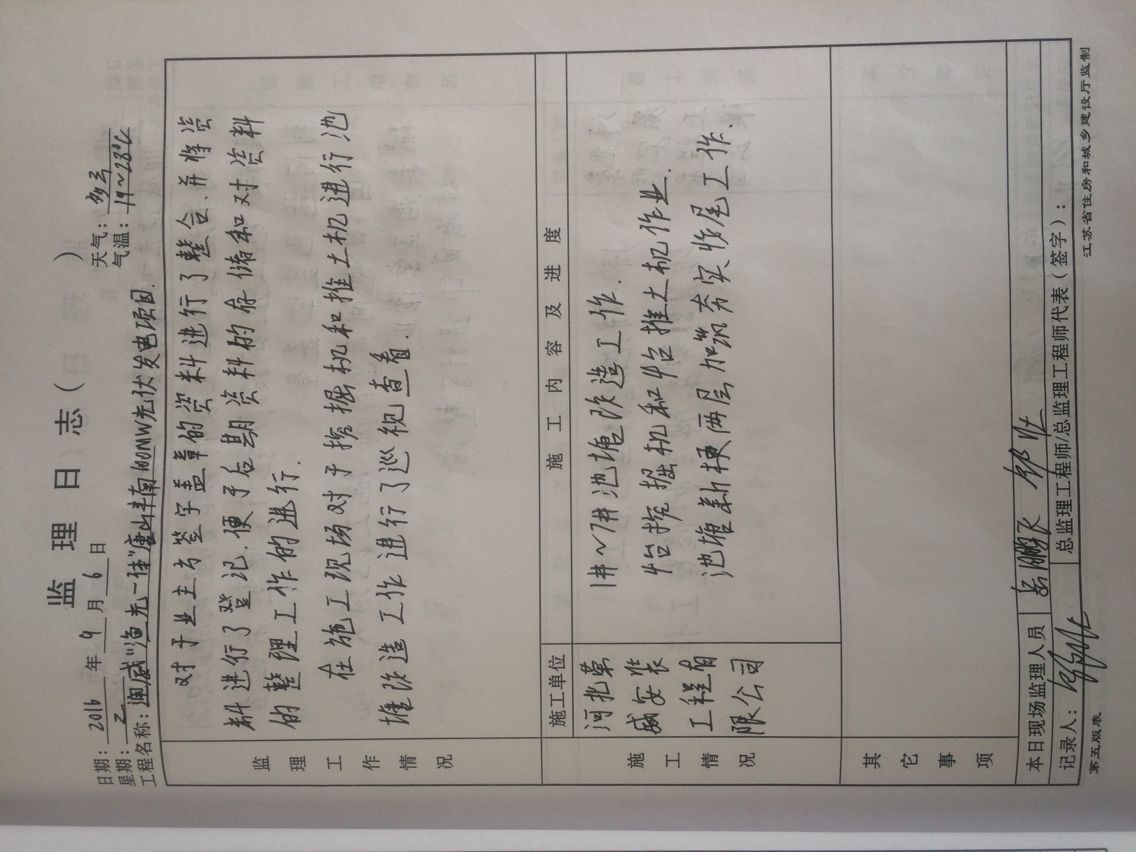 监理日志（日 ）
日期：2016年9月6日 天气：多云
星期：二 气温：19~28℃
工程名称：渔光一佳"唐山丰南100MW光伏发电项目.
监理工作情况
对于业主与签字盖章的资料进行了整合、并将资
料进行了登记.便于后期资料的存储和对资料
的整理工作的进行.
在施工现场对于挖掘机和推土机进行池
塘改造工作进行了巡视查看.
施工情况
施工单位 施工内容及进度
河北
威安装
工程有
限公司
1#~7#池塘改造工作.
挖掘机和 推土机作业.
池塘新梗两层加 夯实收尾工作.
其它事项
本日现场监理人员
记录人： 总监理工程师/总监理工程师代表（签字）：
第五版表 江苏省住房和城乡建设厅监制